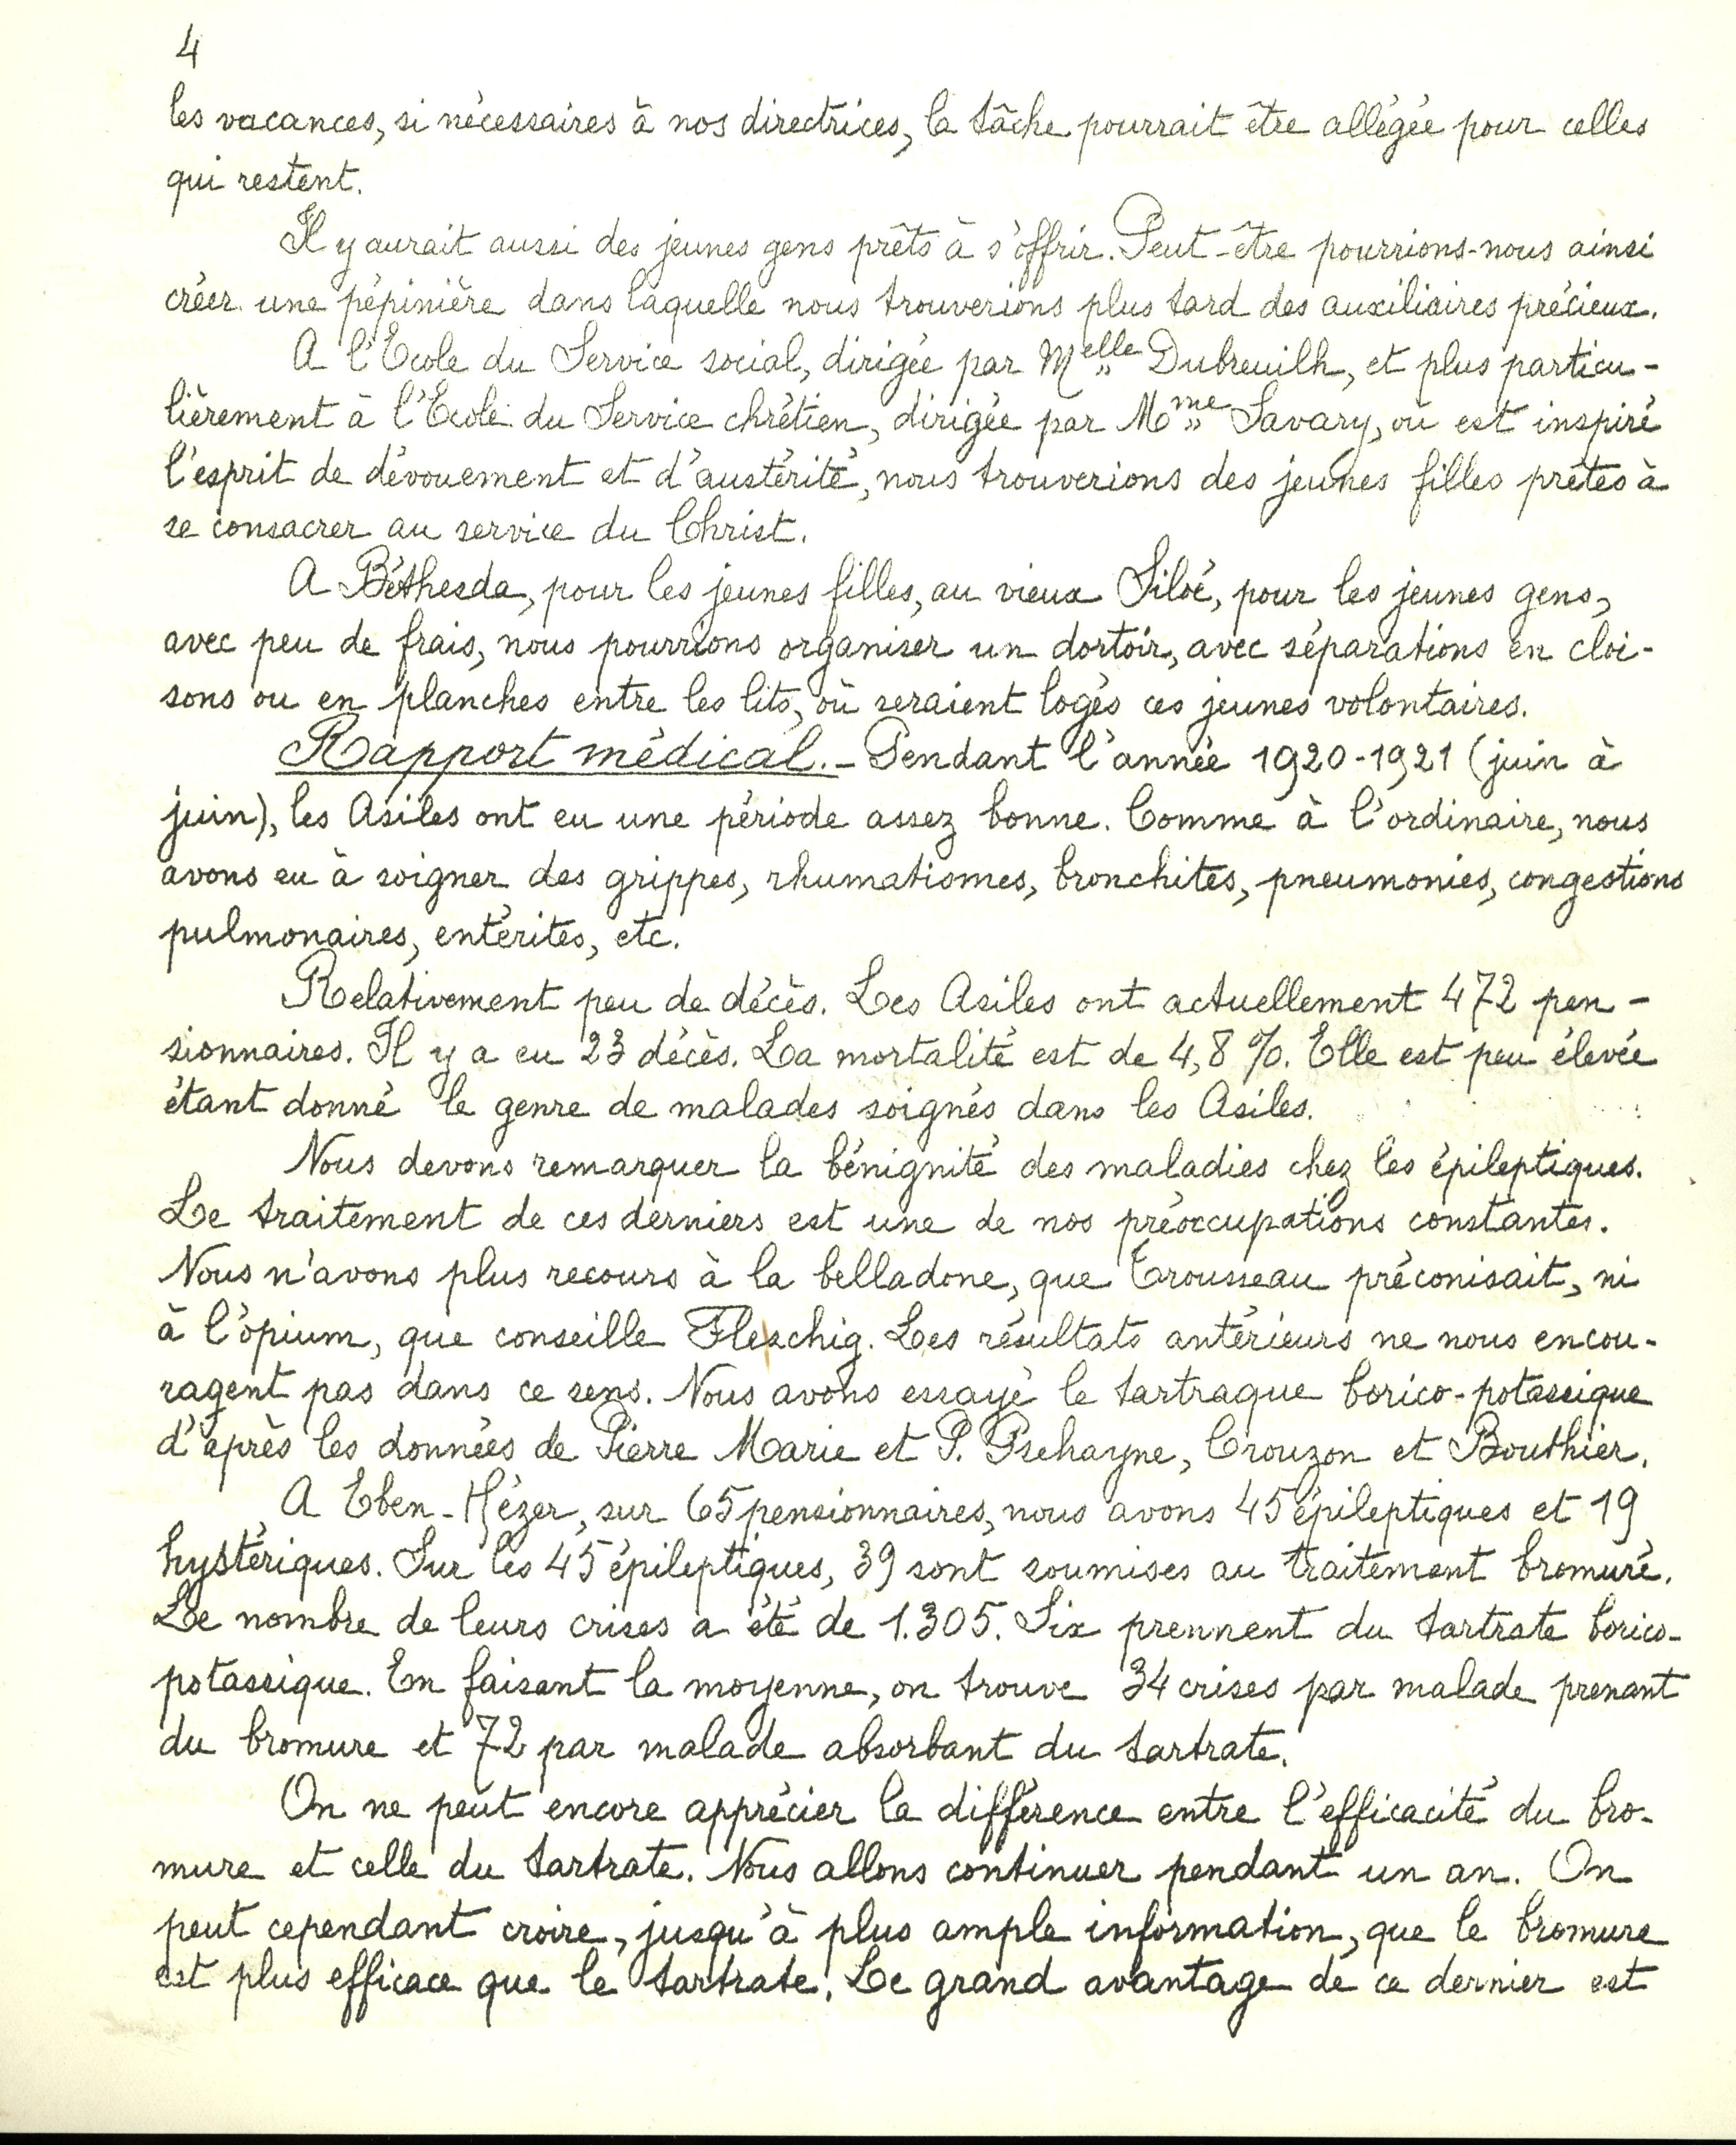 4
les vacances, si nécessaires à nos directrices, la tâche pourrait être allégée pour celles
qui restent.
Il y aurait aussi des jeunes gens prêts à s'offrir. Peut-être pourrions-nous ainsi
créer une pépinière dans laquelle nous trouverions plus tard des auxiliaires précieux.
A l'Ecole du Service social, dirigée par Melle Dubreuilh, et plus particu-
lièrement à l'Ecole du Service chrétien, dirigée par Mme Savary, où est inspiré
l'esprit de dévouement et d'austérité, nous trouverions des jeunes filles prêtes à
se consacrer au service du Christ.
A Béthesda, pour les jeunes filles, au vieux Siloé, pour les jeunes gens,
avec peu de frais, nous pourrions organiser un dortoir, avec séparations en cloi-
sons ou en planches entre les lits, où seraient logés ces jeunes volontaires.
Rapport médical. - Pendant l'année 1920-1921 (juin à
juin), les Asiles ont eu une période assez bonne. Comme à l'ordinaire, nous
avons eu à soigner des grippes, rhumatismes, bronchites, pneumonies, congestions
pulmonaires, entérites, etc.
Relativement peu de décès. Les Asiles ont actuellement 472 pen-
sionnaires. Il y a eu 23 décès. La mortalité est de 4,8 %. Elle est peu élevée
étant donné le genre de malades soignés dans les Asiles.
Nous devons remarquer la bénignité des maladies chez les épileptiques.
Le traitement de ces derniers est une de nos préoccupations constantes.
Nous n'avons plus recours à la belladone, que Trousseau préconisait, ni
à l'opium, que conseille Fleschig. Les résultats antérieurs ne nous encou-
ragent pas dans ce sens. Nous avons essayé le tartraque borico-potassique
d'après les données de Pierre Marie et P. Psehayne, Crouzon et Bouthier.
A Eben-Hézer, sur 65 pensionnaires, nous avons 45 épileptiques et 19
hystériques. Sur les 45 épileptiques, 39 sont soumises au traitement bromuré.
Le nombre de leurs crises a été de 1.305. Six prennent du tartrate borico-
potassique. En faisant la moyenne, on trouve 34 crises par malade prenant
du bromure et 72 par malade absorbant du tartrate.
On ne peut encore apprécier la différence entre l'efficacité du bro-
mure et celle du tartrate. Nous allons continuer pendant un an. On
peut cependant croire, jusqu'à plus ample information, que le bromure
est plus efficace que le tartrate. Le grand avantage de ce dernier est